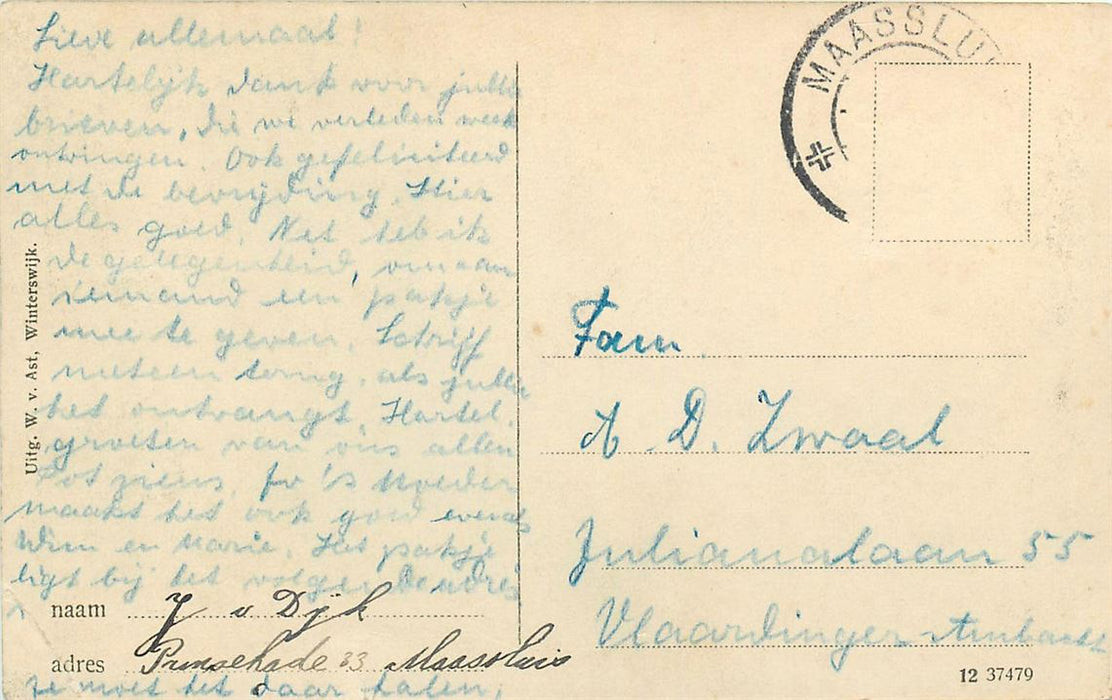 Lieve allemaal!
Hartelijk dank voor jullie
brieven, die we verleden week
ontvingen. Ook gefeliciteerd
met de bevrijding. Hier
alles goed. Net heb ik
de gelegenheid, om aan
iemand een pakje
mee te geven. Schrijf
meteen terug, als jullie
het ontvangt. Hartel.
groeten van ons allen
Tot ziens. Jo 's Moeder
maakt het ook goed evenals
Wim en Marie. Het pakje
ligt bij het volgende adres
naam J v Dijk
adres Prinsekade 33 Maassluis
ze moet het daar halen.
Uitg. W. v. Ast, Winterswijk.
MAASSLUI
Fam.
A. D. Zwaal
Julianalaan 55
Vlaardinger-Ambacht
12 37479